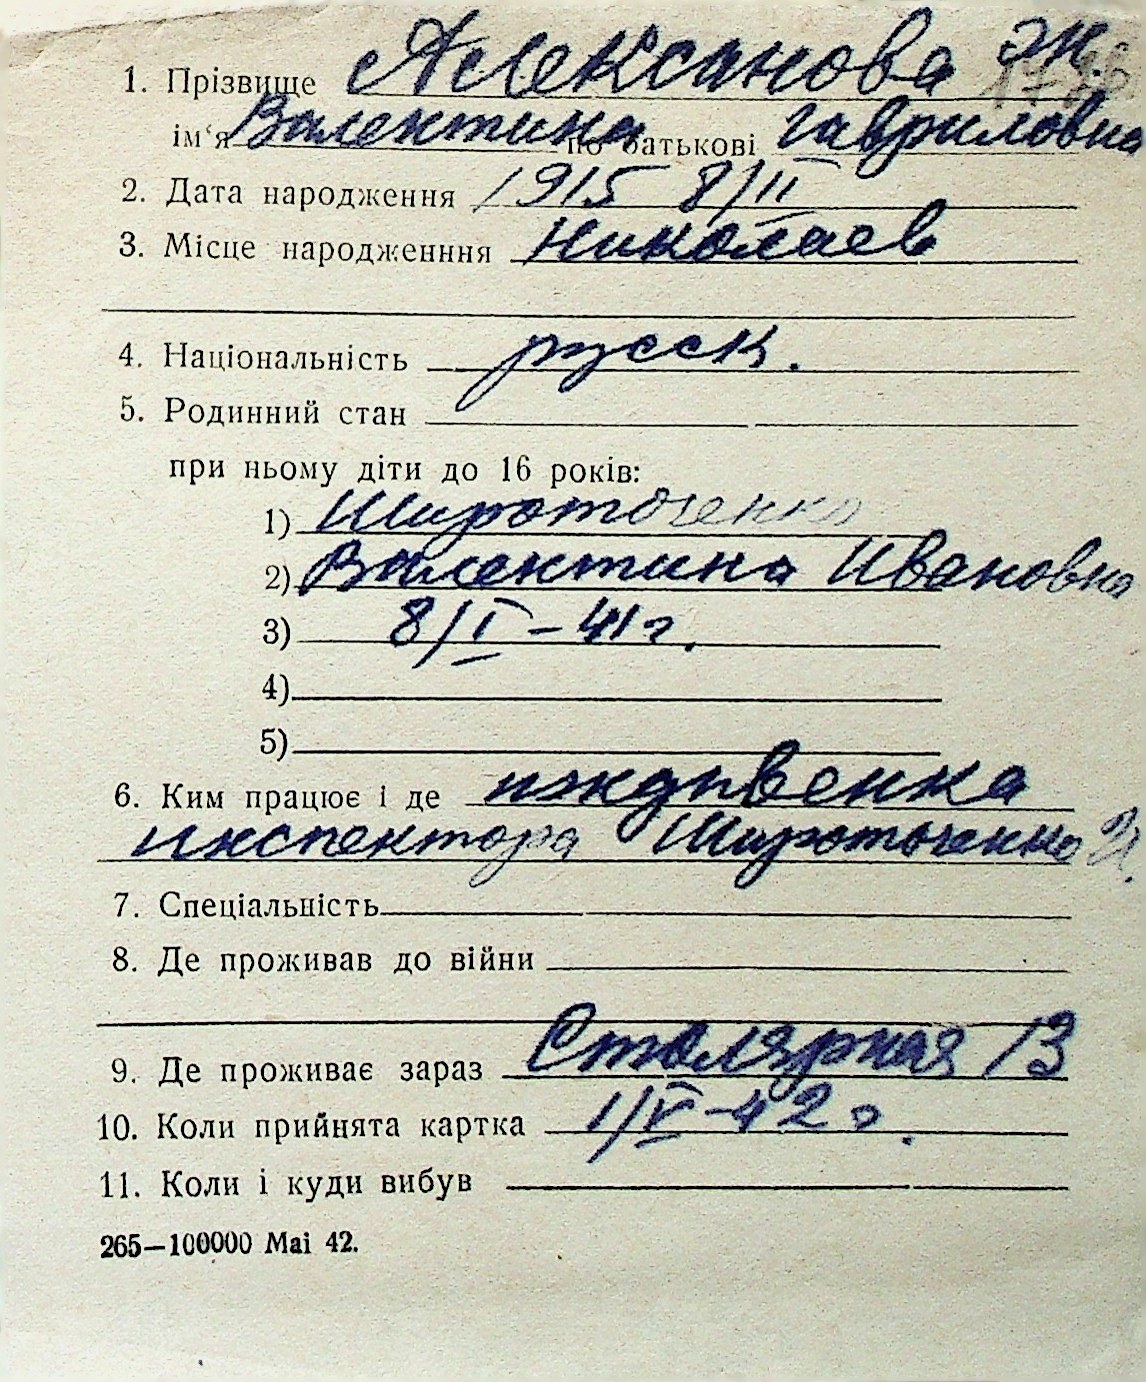 1. Прізвище Алексанова Ж.
ім'я Валентина по батькові Гавриловна
2. Дата народження 1915 8/II
3. Місце народженння Николаев
4. Національність русск.
5. Родинний стан
при ньому діти до 16 років:
1) Широточенко
2) Валентина Ивановна
3) 8/I – 41 г.
4)
5)
6. Ким працює і де иждивенка
инспектора Широточенко И.
7. Спеціальність
8. Де проживав до війни
9. Де проживає зараз Столярная 13
10. Коли прийнята картка 1/V-42 г.
11. Коли і куди вибув
265—100000 Маі 42.